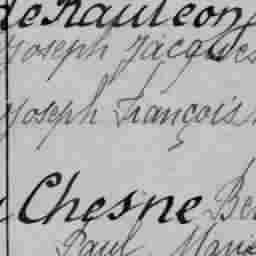 de Rauléon
Joseph Jacques
Joseph François
Chesne Be
Paul Marie